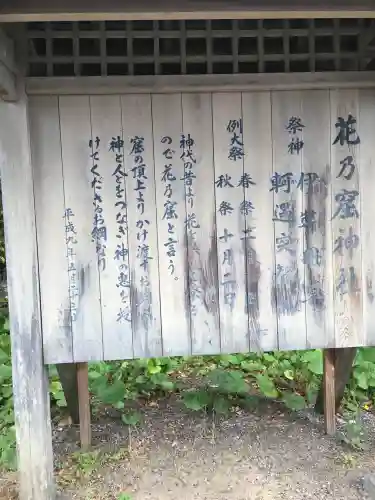 花乃窟神社
祭神 伊弉冊尊
軻遇突智
例大祭 春祭 二月二日
秋祭 十月二日
神代の昔より花を以て祭る
ので花乃窟と言う。
窟の頂上よりかけ渡すお綱
神と人とをつなぎ神の恵を授
けてくださるお綱なり
平成九年五月